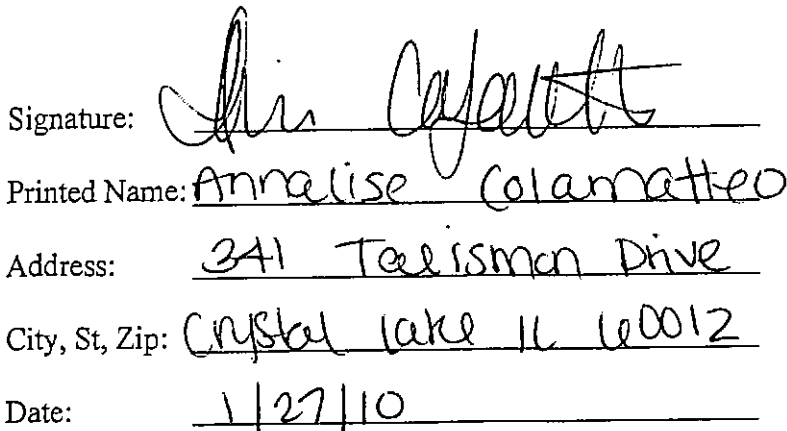 Signature:
Printed Name: Annalise Colamatteo
Address: 341 Talisman Drive
City, St, Zip: Crystal lake IL 60012
Date: 1/27/10